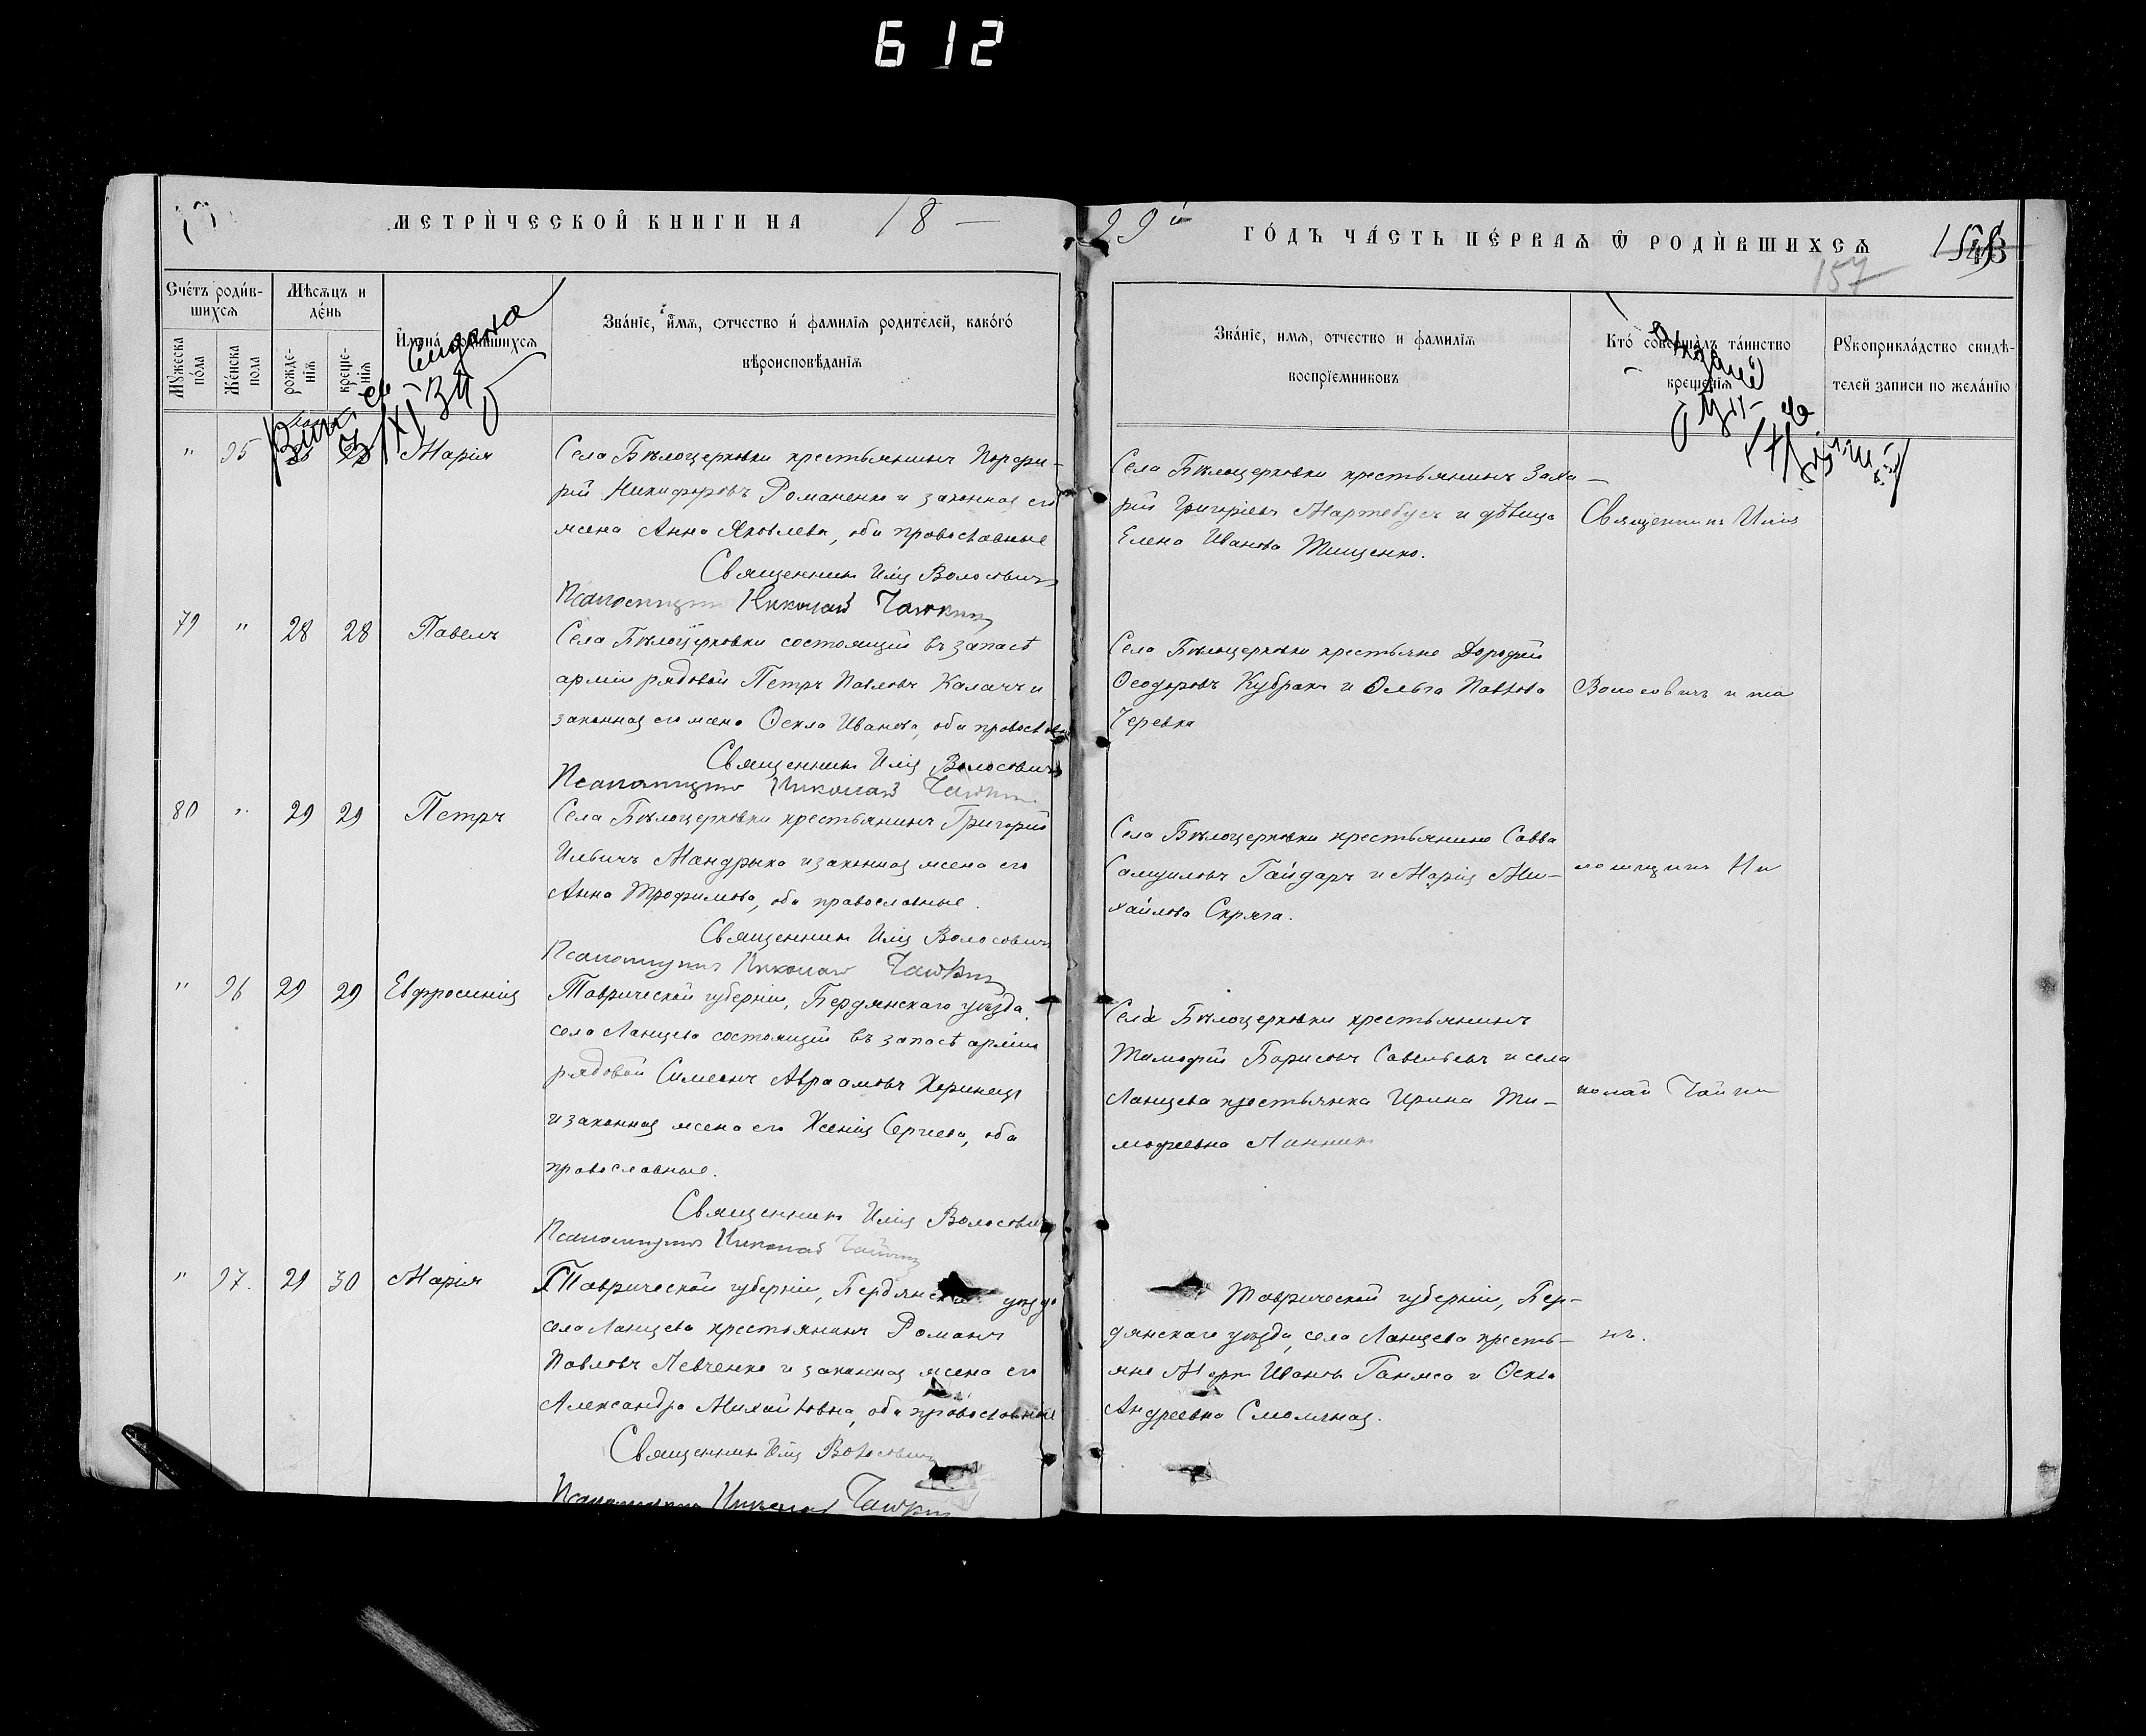 612
МЕТРИ́ЧЕСКОЙ КНИГИ НА 18 —
99й ГО́ДЪ ЧА́СТЬ ПЕ́РВАѦ Ѿ РОДИ́ВШИХСѦ
157
Сче́тъ роди́в-
шихсѧ
Мѣсѧцъ и
де́нь
Мꙋ́жеска
по́ла
Же́нска
пола
рожде-
нїѧ
креще-
нїѧ
И́мена родившихсѧ
Зва́нїе, и́мѧ, ѻтчество и́ фамилїѧ родителей, како́го́
вѣроисповѣданїѧ
Зва́нїе, имѧ, отчество и фамилїѧ
воспрїемниковъ
Кто́ соверша́лъ та́инство
креще́нїѧ
Рꙋкоприкла́дство свидѣ-
телей записи по жела́нїю
" 95 Марія
Села Бѣлоцерковки крестьянинъ Порфи-
рій Никифоровъ Романенко и законная его
жена Анна Яковлева, оба православные
Священникъ Илія Волосовичъ
Псаломщикъ Николай
Села Бѣлоцерковки крестьянинъ Заха-
рій Григоріевъ Мартебусъ и дѣвица
Елена Иванова Тищенко.
Священникъ Илія
79 " 28 28 Павелъ
Села Бѣлоцерковки состоящій въ запасѣ
арміи рядовой Петръ Павловъ Калачъ и
законная его жена Ѳекла Иванова, оба православные
Священникъ Илія Волосовичъ
Псаломщикъ Николай
Села Бѣлоцерковки крестьяне Дорофей
Ѳеодоровъ Кубракъ и Ольга Павлова
Черевка
Волосовичъ и пса
80 " 29 29 Петръ
Села Бѣлоцерковки крестьянинъ Григорій
Ильичъ Мандрыка и законная жена его
Анна Трофимова, оба православные.
Священникъ Илія Волосовичъ
Псаломщикъ Николай
Села Бѣлоцерковки крестьянинъ Савва
Самуиловъ Гайдаръ и Марія Ми-
хайлова Скряга.
ломщикъ Ни
" 96 29 29 Евфросинія
Таврической губерніи, Бердянскаго уѣзда,
села Ланцева состоящій въ запасѣ арміи
рядовой Симеонъ Авраамовъ
и законная жена его Ксенія Сергіева, оба
православные.
Священникъ Илія Волосовичъ
Псаломщикъ Николай
Села Бѣлоцерковки крестьянинъ
Тимофей Борисовъ Савельевъ и села
Ланцева крестьянка Ирина Ти-
мофеевна
колай
" 97. 29 30 Марія
Таврической губерніи, Бердянскаго уѣзда
села Ланцева крестьянинъ Романъ
Павловъ Левченко и законная жена его
Александра Михайловна, оба православные
Священникъ Илія Волосовичъ
Псаломщикъ Николай
Таврической губерніи, Бер-
дянскаго уѣзда, села Ланцева кресть-
яне Иванъ и Ѳекла
Андреевна Смолячная.